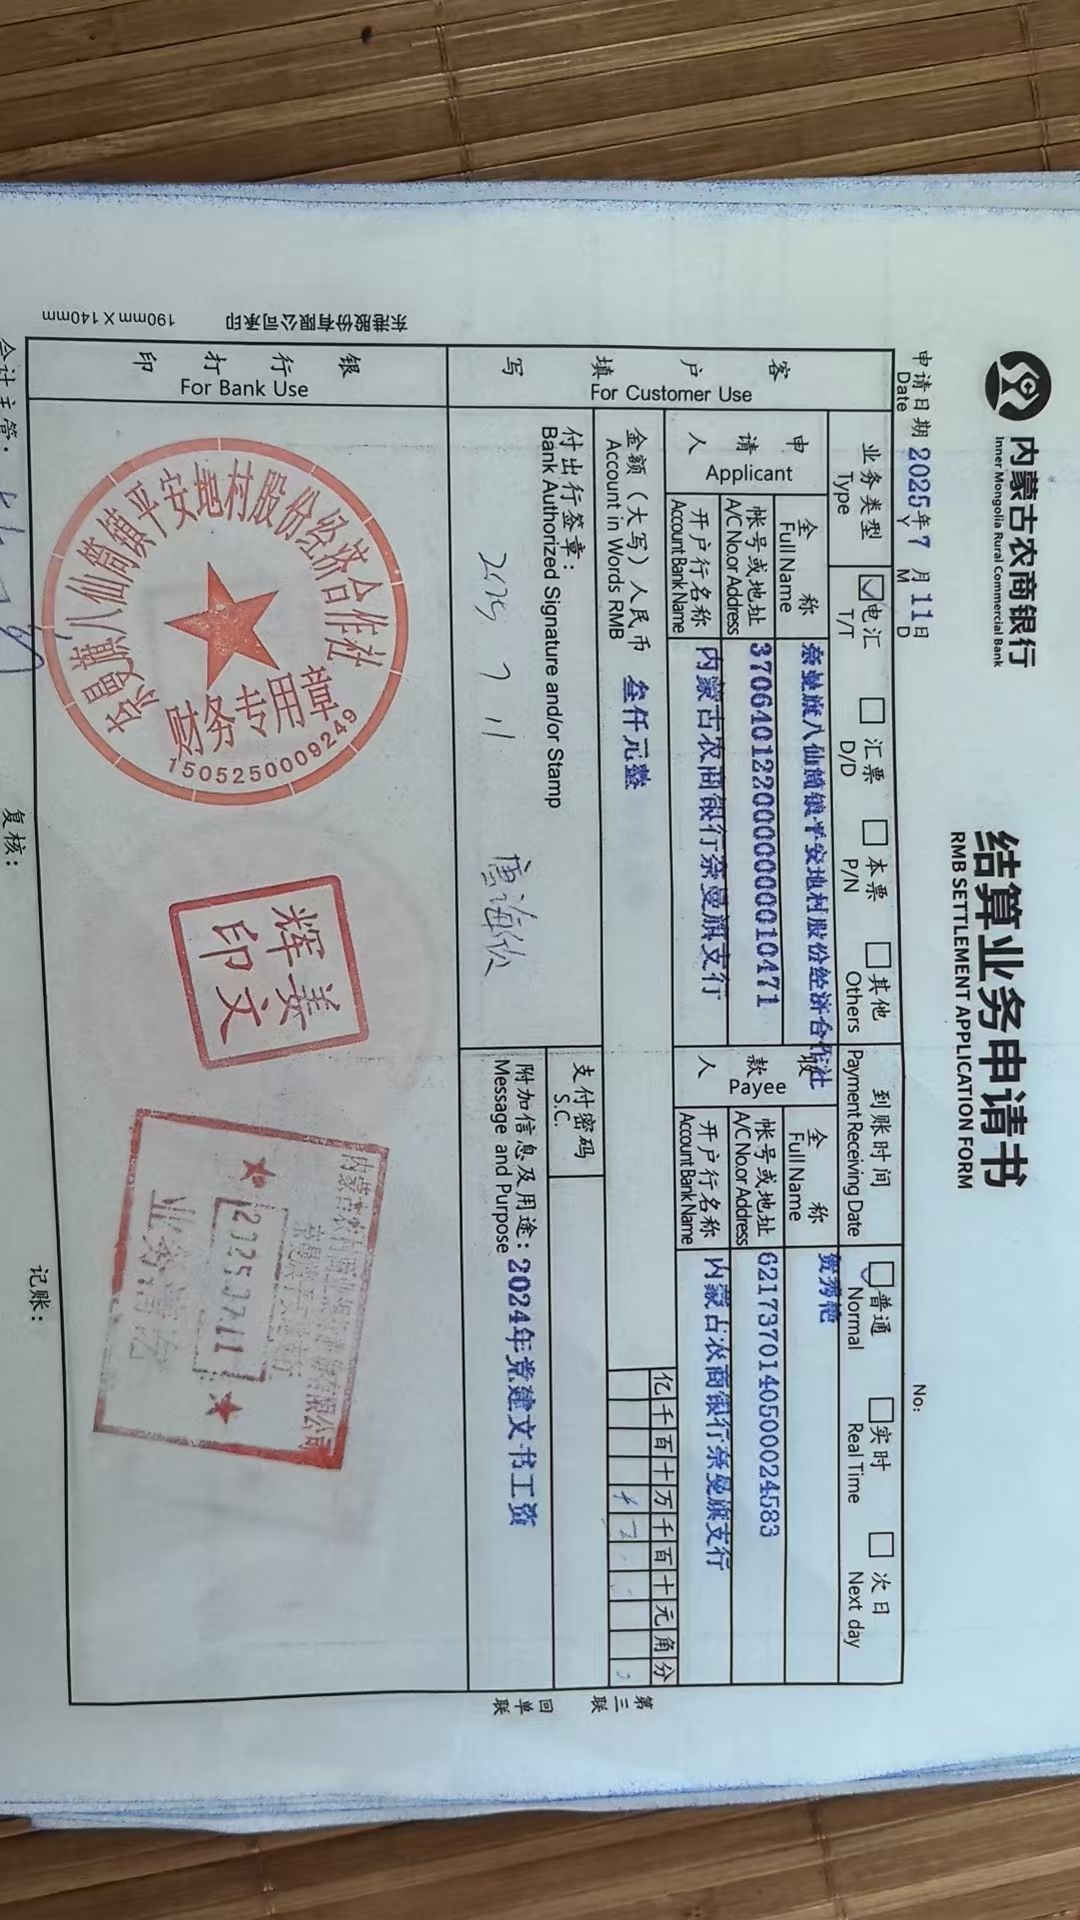 内蒙古农商银行
Inner Mongolia Rural Commercial Bank
结算业务申请书
RMB SETTLEMENT APPLICATION FORM
申请日期 2025年7月11日
Date Y M D
No:
客户填写
For Customer Use
业务类型
Type
电汇
T/T
汇票
D/D
本票
P/N
其他
Others
到账时间
Payment Receiving Date
普通
Normal
实时
Real Time
次日
Next day
申请人
Applicant
全称
Full Name
奈曼旗八仙筒镇平安地村股份经济合作社
帐号或地址
A/C No.or Address
370640122000000010471
开户行名称
Account Bank Name
内蒙古农商银行奈曼旗支行
收款人
Payee
全称
Full Name
贺秀艳
帐号或地址
A/C No.or Address
6217370140500024583
开户行名称
Account Bank Name
内蒙古农商银行奈曼旗支行
金额（大写）人民币 叁仟元整
Account in Words RMB
亿千百十万千百十元角分
付出行签章：
Bank Authorized Signature and/or Stamp
2025 7 11
支付密码
S.C.
附加信息及用途：2024年党建文书工资
Message and Purpose
银行打印
For Bank Use
奈曼旗八仙筒镇平安地村股份经济合作社
财务专用章
1505250009249
姜文辉印
2025.07.11
会计主管：
复核：
记账：
第三联
回单联
东港股份有限公司承印
190mm×140mm